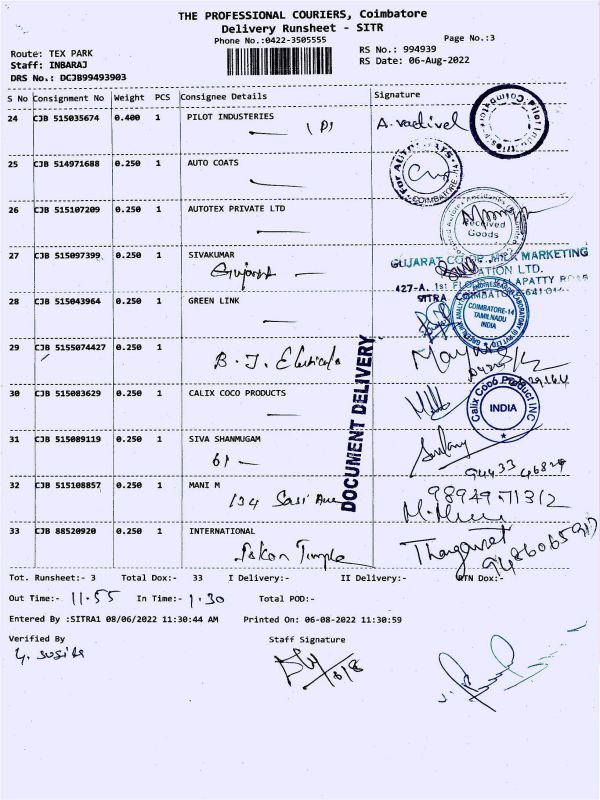 THE PROFESSIONAL COURIERS, Coimbatore
Delivery Runsheet - SITR
Phone No.:0422-3505555
Page No.:3
Route: TEX PARK
RS No.: 994939
Staff: INBARAJ
RS Date: 06-Aug-2022
DRS No.: DCJB99493903
S No Consignment No Weight PCS Consignee Details Signature
24 CJB 515035674 0.400 1 PILOT INDUSTERIES A. vadivel
25 CJB 514971688 0.250 1 AUTO COATS
COIMBATORE
26 CJB 515107209 0.250 1 AUTOTEX PRIVATE LTD
Received
Goods
27 CJB 515097399 0.250 1 SIVAKUMAR
GUJARAT CO-OP. MILK MARKETING
427-A. 1st
SITRA
28 CJB 515043964 0.250 1 GREEN LINK
COIMBATORE-14
TAMILNADU
INDIA
29 CJB 5155074427 0.250 1
B. J. Electricals
DOCUMENT DELIVERY
30 CJB 515083629 0.250 1 CALIX COCO PRODUCTS
Calix Coco Product INC
INDIA
31 CJB 515089119 0.250 1 SIVA SHANMUGAM
61
32 CJB 515108857 0.250 1 MANI M
134 Sasi Ave
9894971312
33 CJB 88520920 0.250 1 INTERNATIONAL
Iskon Temple
Tot. Runsheet:- 3 Total Dox:- 33 I Delivery:- II Delivery:- RTN Dox:-
Out Time:- 11.55 In Time:- 1.30 Total POD:-
Entered By :SITRA1 08/06/2022 11:30:44 AM Printed On: 06-08-2022 11:30:59
Verified By Staff Signature